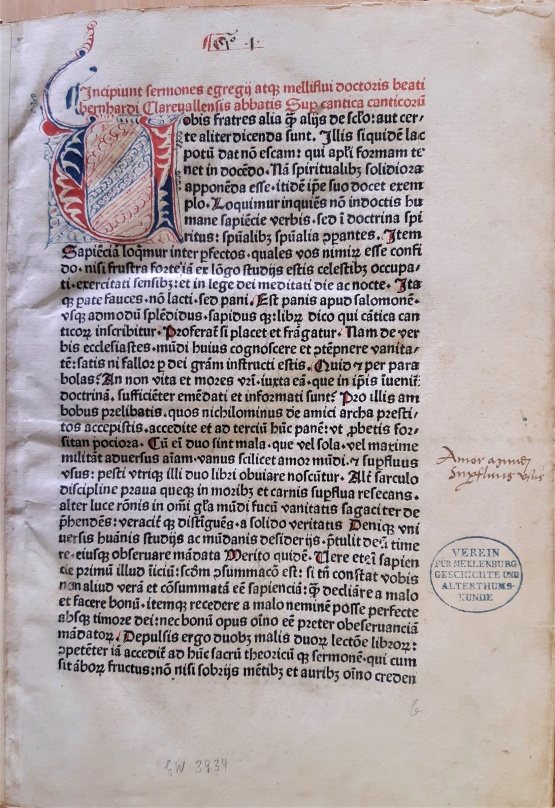 Incipiunt sermones egregij atqꝫ melliflui doctoris beati
bernhardi Clareuallensis abbatis Sup cantica canticoꝝ
Uobis fratres alia ꝙ̄ alijs de sclo: aut cer/
te aliter dicenda sunt. Illis siquidē lac
potū dat nō escam: qui apłi formam te
net in docēdo. Nā spiritualibꝫ solidiora
apponēda esse. itidē ip̄e suo docet exem
plo. Loquimur inquiēs nō indoctis hu
mane sapiēcie verbis. sed ī doctrina spi
ritus: spūalibꝫ spūalia ꝯpantes. Item
Sapiēciā loq̄mur inter pfectos. quales vos nimiꝝ esse confi
do. nisi frustra forte iā ex lōgo studijs estis celestibꝫ occupa/
ti. exercitati sensibꝫ: et in lege dei meditati die ac nocte. Ita
qꝫ pate fauces. nō lacti. sed pani. Est panis apud salomonē.
vsqꝫ admodū splēdidus. sapidus qꝫ: libꝝ dico qui cātica can
ticoꝝ inscribitur. Proferat̄ si placet et frāgatur. Nam de ver
bis ecclesiastes. mūdi huius cognoscere et ꝯtēpnere vanita/
tē: satis ni fallor p dei grām instructi estis. Quid ⁊ per para
bolas? An non vita et mores vr̄i. iuxta eā. que in ip̄is īuenit̄
doctrinā. sufficiēter emēdati et informati sunt? Pro illis am
bobus prelibatis. quos nichilominus de amici archa presti/
tos accepistis. accedite et ad terciū hūc panē: vt ꝓbetis for/
sitan pociora. Cū em̄ duo sint mala. que vel sola. vel maxime
militāt aduersus aīam. vanus scilicet amor mūdi. ⁊ supfluus
vsus: pesti vtriqꝫ illi duo libri obuiare noscūtur. Alt̄ sarculo
discipline praua queqꝫ in moribꝫ et carnis supflua resecans.
alter luce rōnis in om̄i gła mūdi fucū vanitatis sagaciter de
p̄hendēs: veracit̄ qꝫ distīguēs. a solido veritatis Deniqꝫ vni
uersis huānis studijs ac mūdanis desiderijs. p̄tulit deū time
re. eiusqꝫ obseruare mādata Merito quidē. Uere eteī sapien
cie primū illud īiciū: scdm ꝯsummacō est: si tn̄ constat vobis
non aliud verā et cōsummatā eē sapienciā: ꝙ̄ decliāre a malo
et facere bonū. itemqꝫ recedere a malo neminē posse perfecte
absqꝫ timore dei: nec bonū opus oīno eē preter obseruanciā
mādatoꝝ. Depulsis ergo duobꝫ malis duoꝝ lectōe libroꝝ:
ꝯpetēter iā accedit̄ ad hūc sacrū theoricū qꝫ sermonē. qui cum
sit āboꝝ fructus: nō nisi sobrijs mētibꝫ et auribꝫ oīno creden
Amor a
Supfluus
VEREIN
FÜR MEKLENBURG
GESCHICHTE UND
ALTERTHUMS-
KUNDE
GW 3934